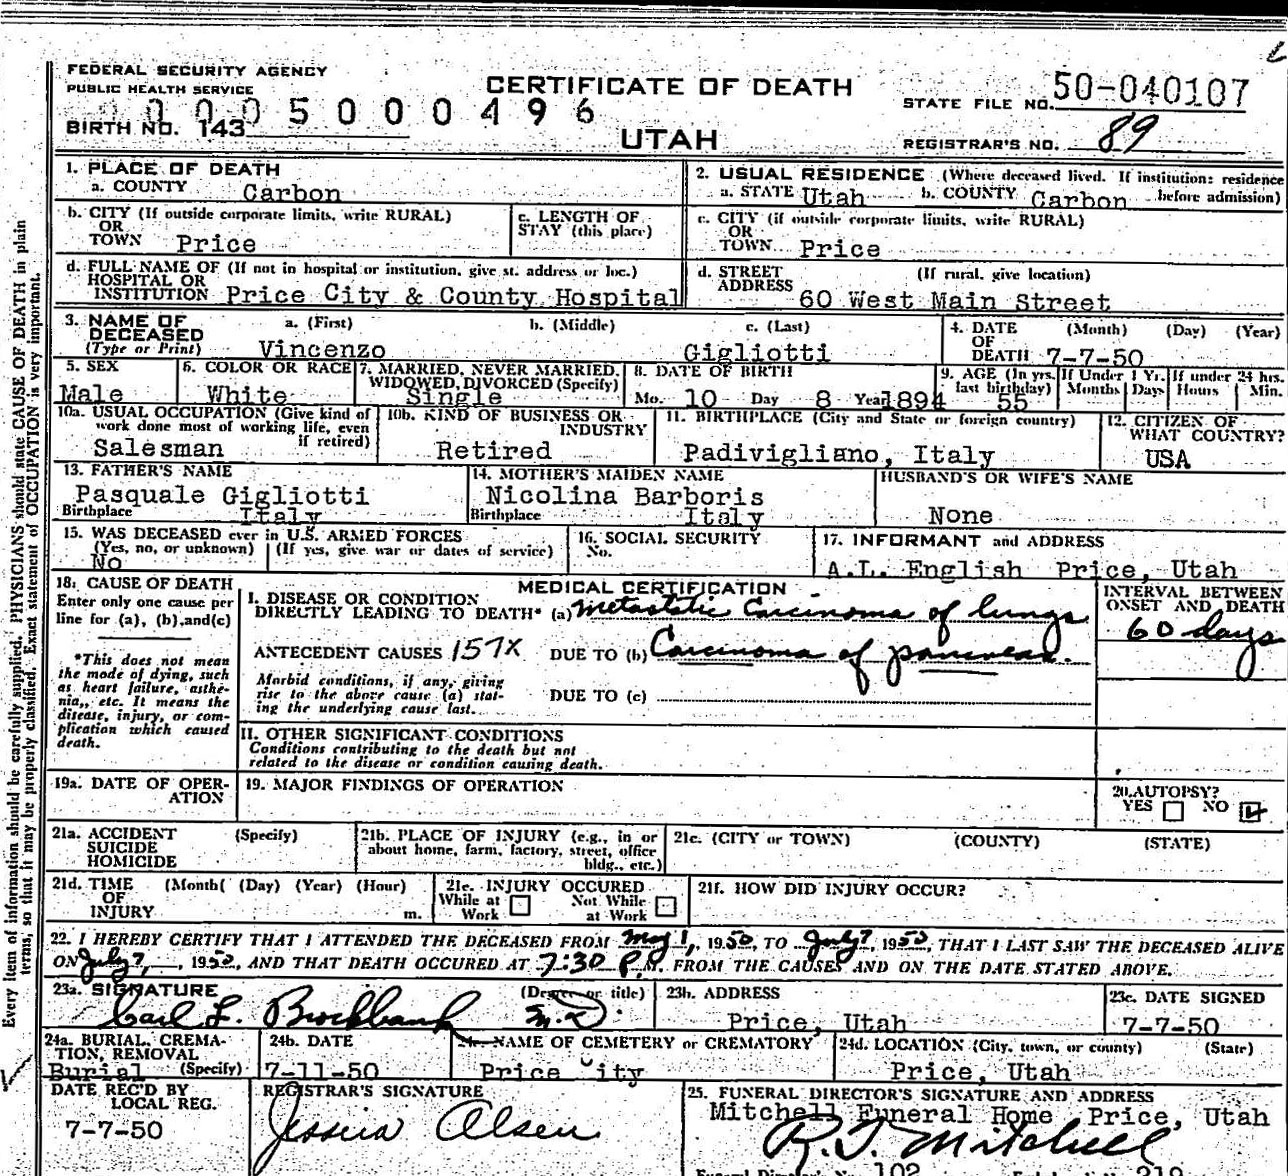 FEDERAL SECURITY AGENCY
PUBLIC HEALTH SERVICE
CERTIFICATE OF DEATH
STATE FILE NO. 50-040107
0005000496
BIRTH NO. 143
UTAH
REGISTRAR'S NO. 89
1. PLACE OF DEATH
a. COUNTY Carbon
2. USUAL RESIDENCE (Where deceased lived. If institution: residence before admission)
a. STATE Utah b. COUNTY Carbon
b. CITY (If outside corporate limits, write RURAL)
OR
TOWN Price
c. LENGTH OF
STAY (this place)
c. CITY (if outside corporate limits, write RURAL)
OR
TOWN Price
d. FULL NAME OF (If not in hospital or institution, give st. address or loc.)
HOSPITAL OR
INSTITUTION Price City & County Hospital
d. STREET (If rural, give location)
ADDRESS
60 West Main Street
3. NAME OF a. (First) b. (Middle) c. (Last)
DECEASED
(Type or Print) Vincenzo Gigliotti
4. DATE (Month) (Day) (Year)
OF
DEATH 7-7-50
5. SEX
Male
6. COLOR OR RACE
White
7. MARRIED, NEVER MARRIED,
WIDOWED, DIVORCED (Specify)
Single
8. DATE OF BIRTH
Mo. 10 Day 8 Year 1894
9. AGE (In yrs. If Under 1 Yr. If under 24 hrs.
last birthday) Months Days Hours Min.
55
10a. USUAL OCCUPATION (Give kind of
work done most of working life, even
if retired)
Salesman
10b. KIND OF BUSINESS OR
INDUSTRY
Retired
11. BIRTHPLACE (City and State or foreign country)
Padivigliano, Italy
12. CITIZEN OF
WHAT COUNTRY?
USA
13. FATHER'S NAME
Pasquale Gigliotti
Birthplace Italy
14. MOTHER'S MAIDEN NAME
Nicolina Barboris
Birthplace Italy
HUSBAND'S OR WIFE'S NAME
None
15. WAS DECEASED ever in U.S. ARMED FORCES
(Yes, no, or unknown) (If yes, give war or dates of service)
No
16. SOCIAL SECURITY
No.
17. INFORMANT and ADDRESS
A.L. English Price, Utah
18. CAUSE OF DEATH
Enter only one cause per
line for (a), (b), and (c)
*This does not mean
the mode of dying, such
as heart failure, asthe-
nia, etc. It means the
disease, injury, or com-
plication which caused
death.
MEDICAL CERTIFICATION
I. DISEASE OR CONDITION
DIRECTLY LEADING TO DEATH* (a) Metastatic Carcinoma of lungs
ANTECEDENT CAUSES 157X DUE TO (b) Carcinoma of pancreas.
Morbid conditions, if any, giving
rise to the above cause (a) stat-
ing the underlying cause last.
DUE TO (c)
INTERVAL BETWEEN
ONSET AND DEATH
60 days
II. OTHER SIGNIFICANT CONDITIONS
Conditions contributing to the death but not
related to the disease or condition causing death.
19a. DATE OF OPER-
ATION
19. MAJOR FINDINGS OF OPERATION
20. AUTOPSY?
YES NO
21a. ACCIDENT (Specify)
SUICIDE
HOMICIDE
21b. PLACE OF INJURY (e.g., in or
about home, farm, factory, street, office
bldg., etc.)
21c. (CITY or TOWN) (COUNTY) (STATE)
21d. TIME (Month( (Day) (Year) (Hour)
OF
INJURY m.
21e. INJURY OCCURED
While at Not While
Work at Work
21f. HOW DID INJURY OCCUR?
22. I HEREBY CERTIFY THAT I ATTENDED THE DECEASED FROM May 1, 1950, TO July 7, 1950, THAT I LAST SAW THE DECEASED ALIVE
ON July 7, 1950, AND THAT DEATH OCCURED AT 7:30 P.M. FROM THE CAUSES AND ON THE DATE STATED ABOVE.
23a. SIGNATURE (Degree or title)
Carl L. Brockbank M.D.
23b. ADDRESS
Price, Utah
23c. DATE SIGNED
7-7-50
24a. BURIAL, CREMA-
TION, REMOVAL
Burial (Specify)
24b. DATE
7-11-50
NAME OF CEMETERY or CREMATORY
Price City
24d. LOCATION (City, town, or county) (State)
Price, Utah
DATE REC'D BY
LOCAL REG.
7-7-50
REGISTRAR'S SIGNATURE
Jessica Olsen
25. FUNERAL DIRECTOR'S SIGNATURE AND ADDRESS
Mitchell Funeral Home Price, Utah
R.J. Mitchell
102 219
Every item of information should be carefully supplied. PHYSICIANS should state CAUSE OF DEATH in plain
terms, so that it may be properly classified. Exact statement of OCCUPATION is very important.